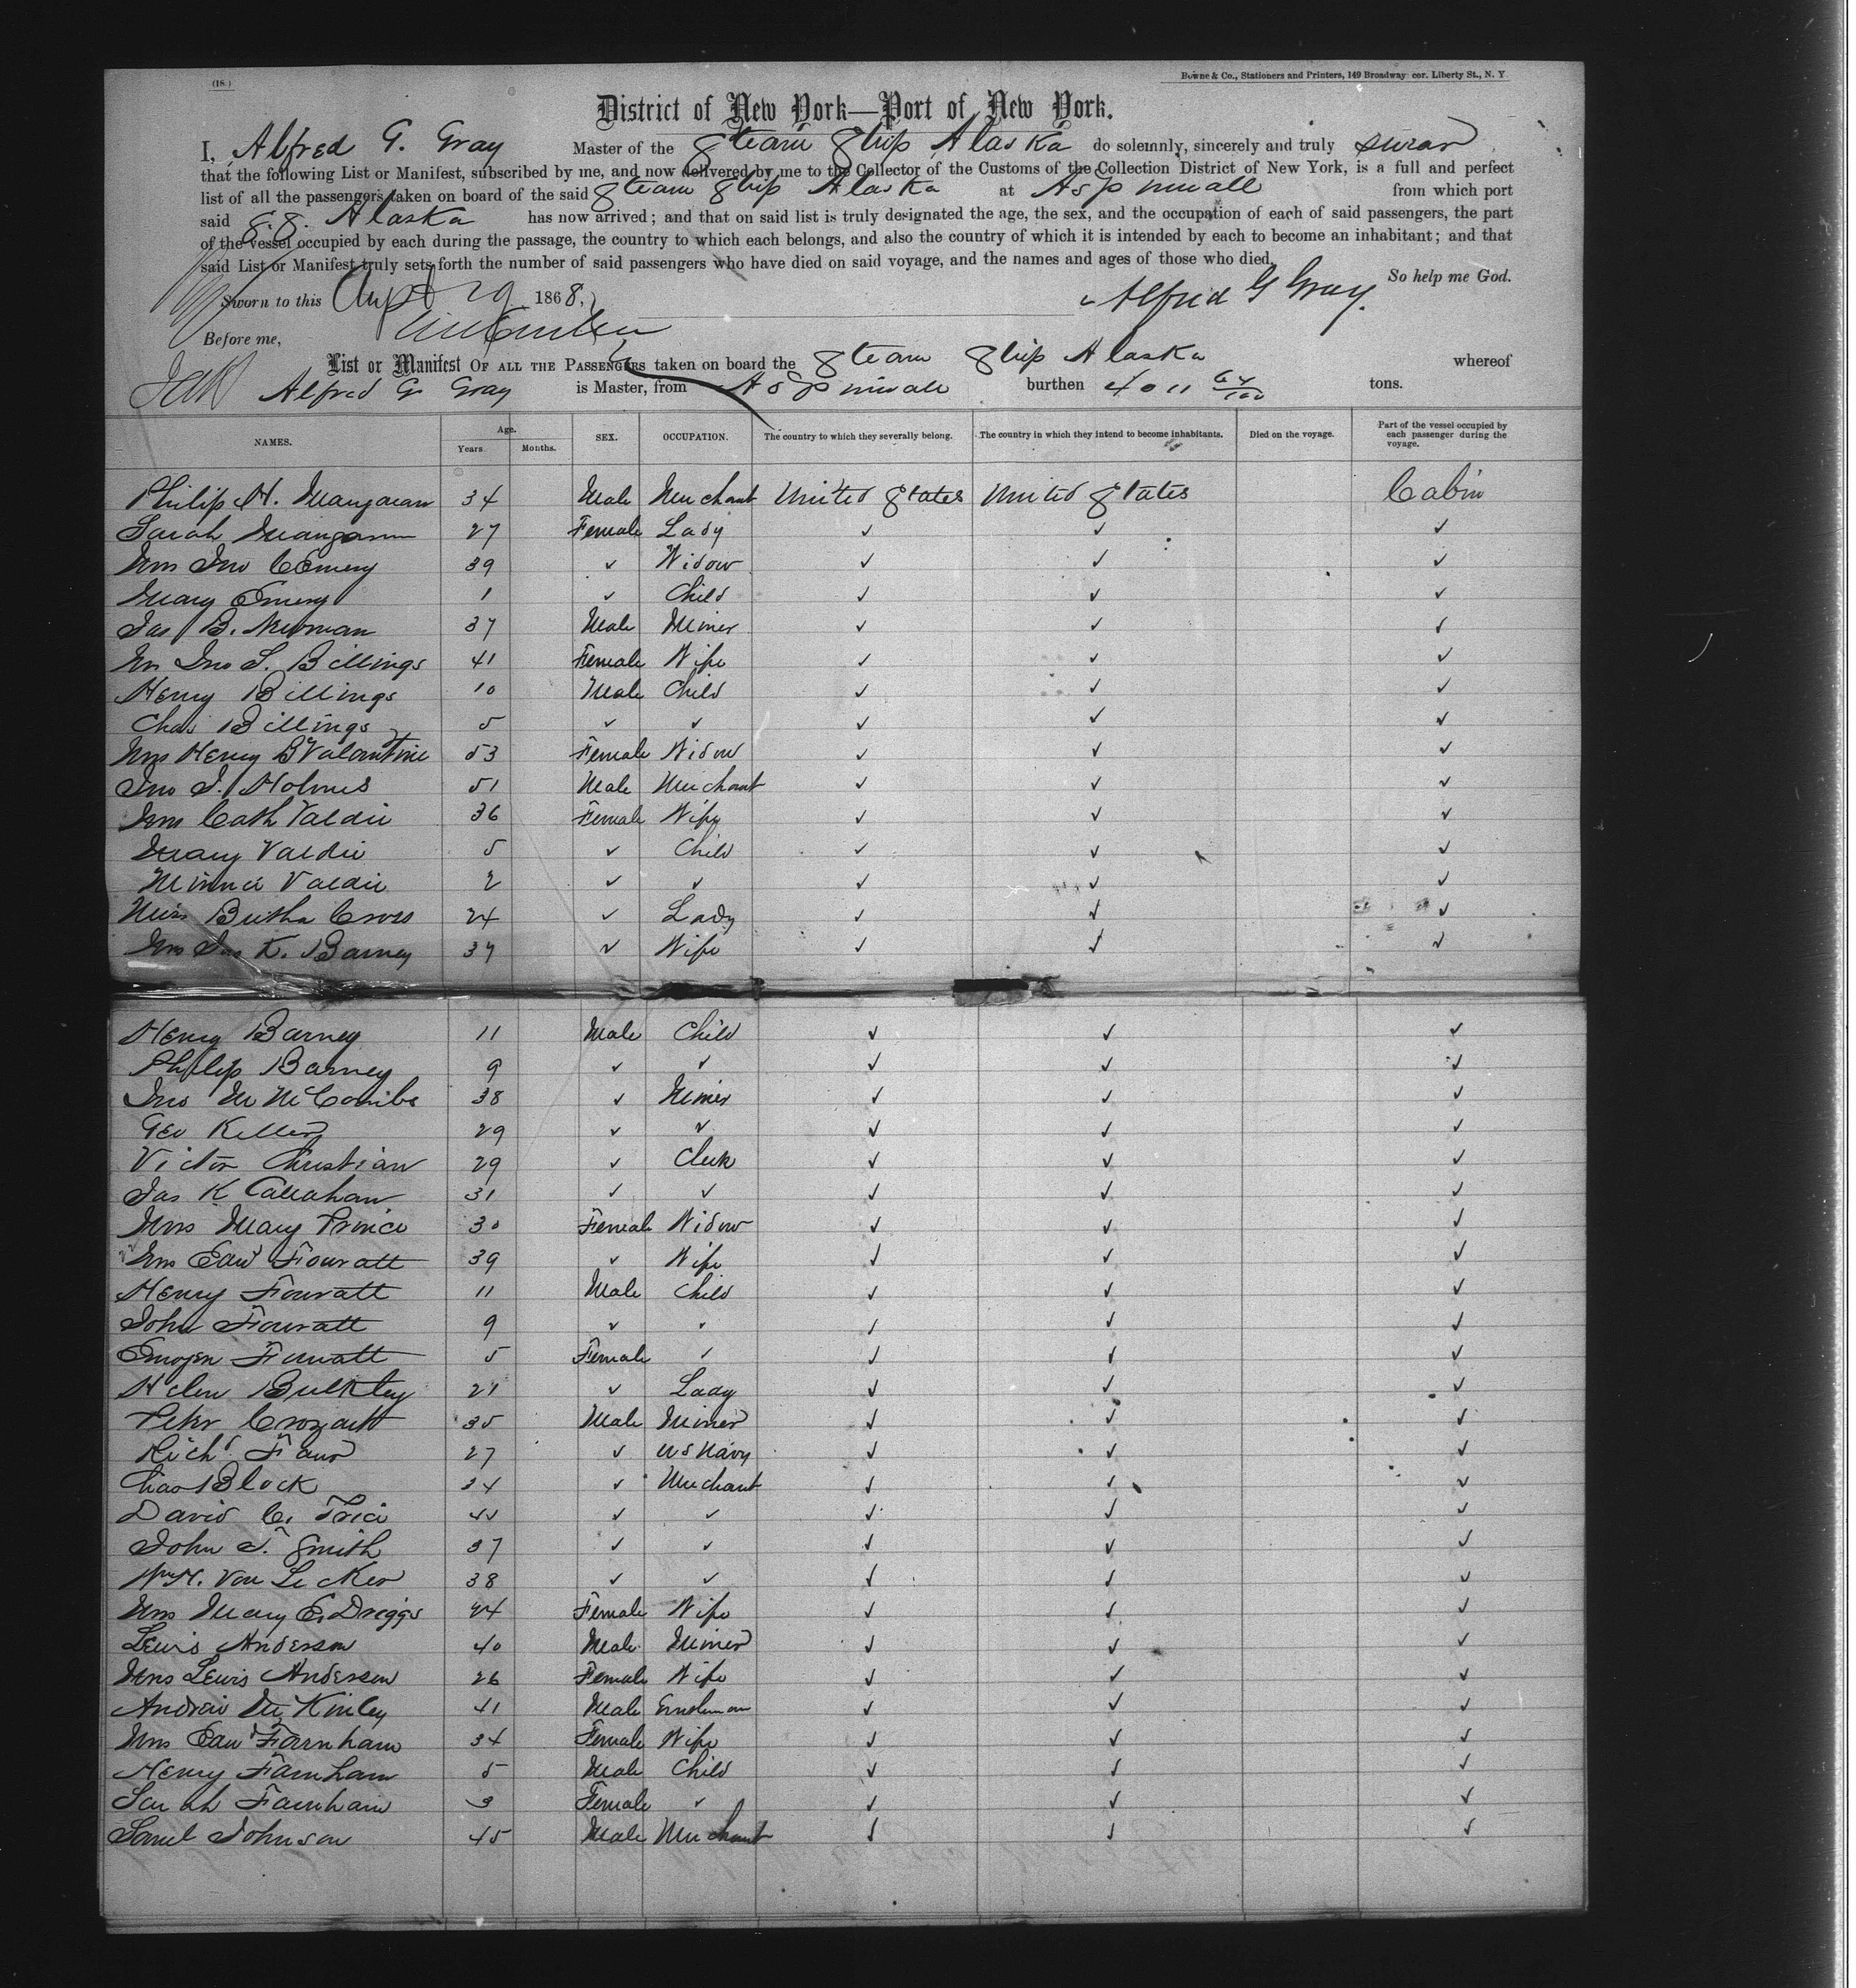 (18.)
Bowne & Co., Stationers and Printers, 149 Broadway cor. Liberty St., N. Y
District of New York—Port of New York.
I, Alfred G. Gray Master of the Steam Ship Alaska do solemnly, sincerely and truly swear
that the following List or Manifest, subscribed by me, and now delivered by me to the Collector of the Customs of the Collection District of New York, is a full and perfect
list of all the passengers taken on board of the said Steam Ship Alaska at Aspinwall from which port
said S.S. Alaska has now arrived; and that on said list is truly designated the age, the sex, and the occupation of each of said passengers, the part
of the vessel occupied by each during the passage, the country to which each belongs, and also the country of which it is intended by each to become an inhabitant; and that
said List or Manifest truly sets forth the number of said passengers who have died on said voyage, and the names and ages of those who died.
So help me God.
Sworn to this 29 1868, Alfred G Gray.
Before me,
List or Manifest OF ALL THE PASSENGERS taken on board the Steam Ship Alaska whereof
Alfred G. Gray is Master, from Aspinwall burthen 4011 64/100 tons.
NAMES. Age. Years Months. SEX. OCCUPATION. The country to which they severally belong. The country in which they intend to become inhabitants. Died on the voyage. Part of the vessel occupied by each passenger during the voyage.
Philip H. 34 Male Merchant United States United States Cabin
Sarah 27 Female Lady ✓ ✓ ✓
Mrs Jno C Emery 39 ✓ Widow ✓ ✓ ✓
Mary Emery 1 ✓ Child ✓ ✓ ✓
Jas B. Newman 37 Male Miner ✓ ✓ ✓
Mrs Jno S. Billings 41 Female Wife ✓ ✓ ✓
Henry Billings 10 Male Child ✓ ✓ ✓
Chas Billings 5 ✓ ✓ ✓ ✓ ✓
Mrs Henry B Valentine 53 Female Widow ✓ ✓ ✓
Jno J. Holmes 51 Male Merchant ✓ ✓ ✓
Mrs Cath Valdie 36 Female Wife ✓ ✓ ✓
Mary Valdie 5 ✓ Child ✓ ✓ ✓
Minnie Valdie 2 ✓ ✓ ✓ ✓ ✓
Miss Bertha Cross 24 ✓ Lady ✓ ✓ ✓
Mrs Jas K. Barney 37 ✓ Wife ✓ ✓ ✓
Henry Barney 11 Male Child ✓ ✓ ✓
Philip Barney 9 ✓ ✓ ✓ ✓ ✓
Jno M McCombe 38 ✓ Miner ✓ ✓ ✓
Geo Keller 29 ✓ ✓ ✓ ✓ ✓
Victor Christian 29 ✓ Clerk ✓ ✓ ✓
Jas K Callahan 31 ✓ ✓ ✓ ✓ ✓
Mrs Mary Prince 30 Female Widow ✓ ✓ ✓
Mrs Edwd Fouratt 39 ✓ Wife ✓ ✓ ✓
Henry Fouratt 11 Male Child ✓ ✓ ✓
John Fouratt 9 ✓ ✓ ✓ ✓ ✓
Emogen Fouratt 5 Female ✓ ✓ ✓ ✓
Helen Bulkley 21 ✓ Lady ✓ ✓ ✓
Peter Crozart 35 Male Miner ✓ ✓ ✓
Richd 27 ✓ US Navy ✓ ✓ ✓
Chas Block 34 ✓ Merchant ✓ ✓ ✓
David C. Price ✓ ✓ ✓ ✓ ✓
John T. Smith 37 ✓ ✓ ✓ ✓ ✓
Wm H. Von 38 ✓ ✓ ✓ ✓ ✓
Mrs Mary E. Driggs 44 Female Wife ✓ ✓ ✓
Lewis Anderson 40 Male Miner ✓ ✓ ✓
Mrs Lewis Anderson 26 Female Wife ✓ ✓ ✓
Andrew McKinley 41 Male ✓ ✓ ✓
Mrs Edwd Farnham 34 Female Wife ✓ ✓ ✓
Henry Farnham 5 Male Child ✓ ✓ ✓
Sarah Farnham 3 Female ✓ ✓ ✓ ✓
Saml Johnson 45 Male Merchant ✓ ✓ ✓